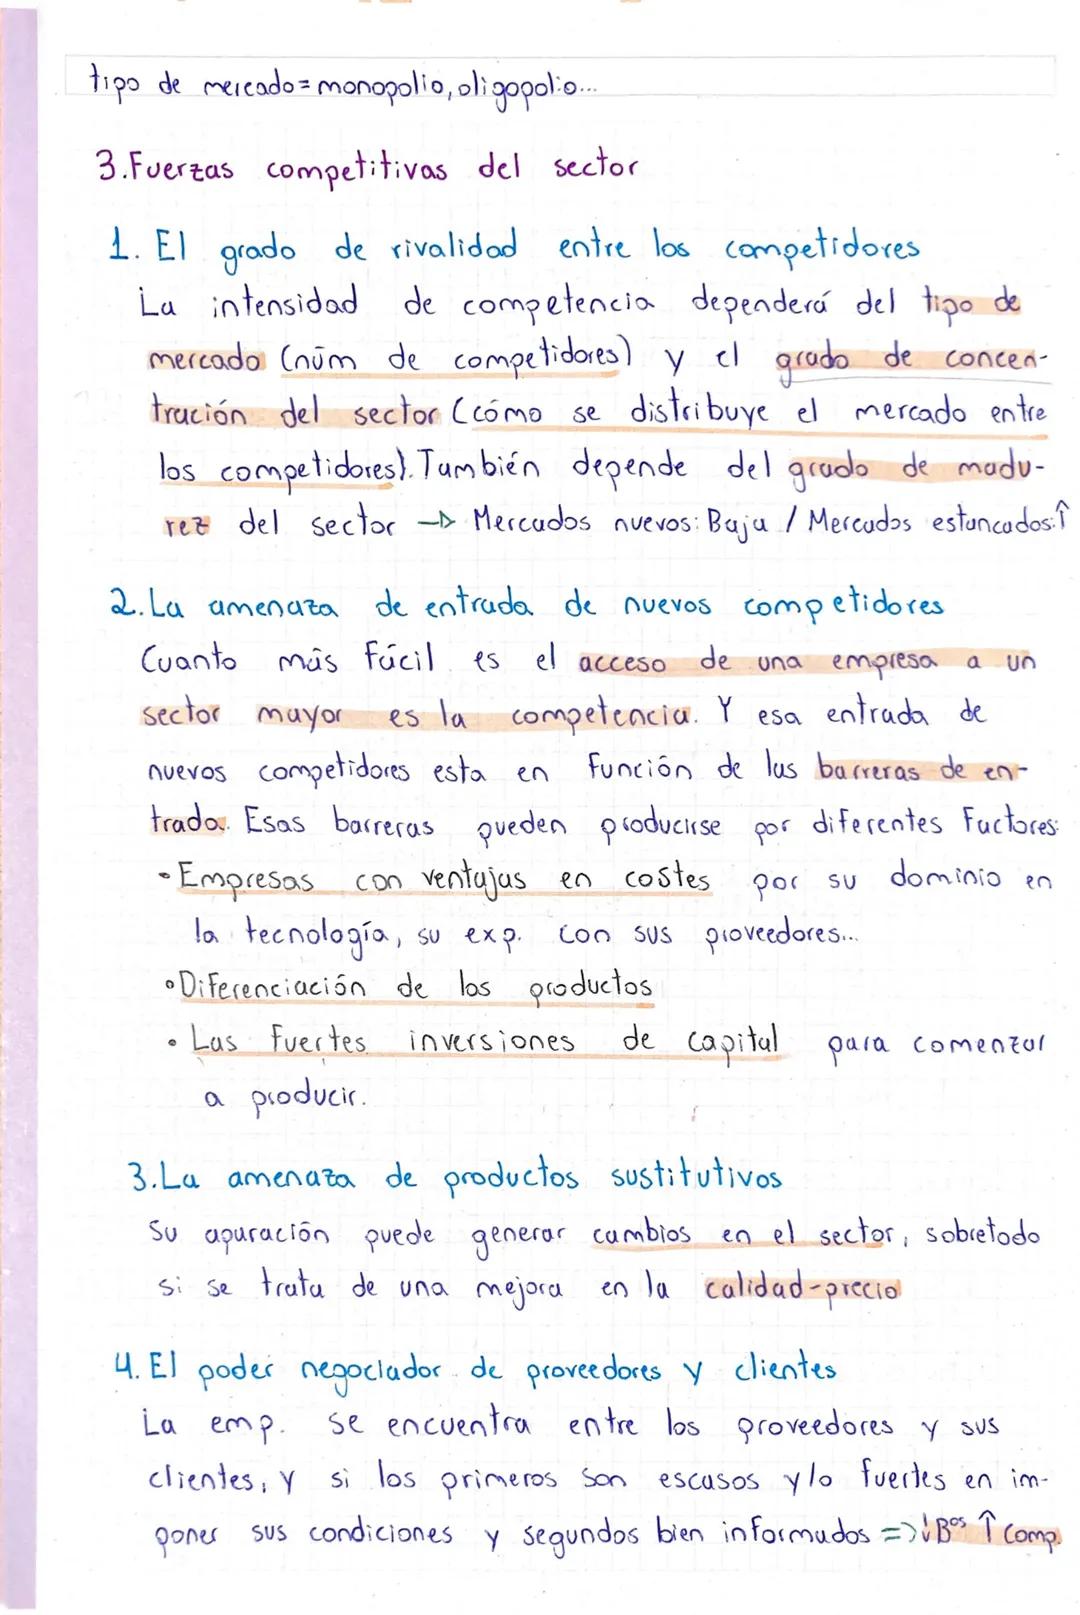 tipo de mercado=monopolio, oligopolio...
3.Fuerzas competitivas del sector
1. El grado de rivalidad entre los competidores
La intensidad de competencia dependerá del tipo de
mercado (núm de competidores) y el grado de concen-
tración del sector (cómo se distribuye el mercado entre
los competidores). También depende del grado de madu-
rez del sector → Mercados nuevos: Baja / Mercados estancados: ↑
2. La amenaza de entrada de nuevos competidores
Cuanto más fácil es el acceso de una empresa a un
sector mayor es la competencia. Y esa entrada de
nuevos competidores esta en función de las barreras de en-
trada. Esas barreras pueden producirse por diferentes factores:
• Empresas con ventajas en costes por su dominio en
la tecnología, su exp. con sus proveedores...
• Diferenciación de los productos
• Las fuertes inversiones de capital para comenzar
a producir.
3. La amenaza de productos sustitutivos
Su apuración puede generar cambios en el sector, sobretodo
si se trata de una mejora en la calidad-precio
4. El poder negociador de proveedores y clientes
La emp. se encuentra entre los proveedores y sus
clientes, y si los primeros son escasos y/o fuertes en im-
poner sus condiciones y segundos bien informados => ↓Bos ↑ comp.